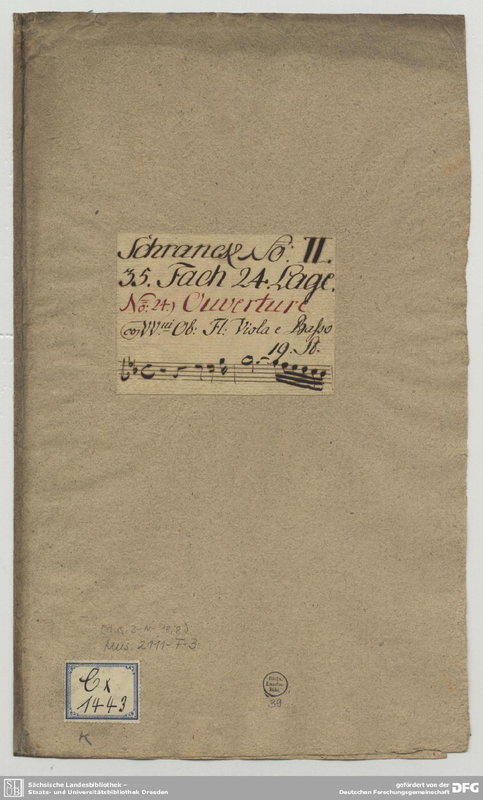 Schranck No: II.
35. Fach 24. Lage.
No: 24.) Ouverture
co VV.ni Ob: Fl: Viola e Basso
19. St.
Mus. 2111-F-3
Cx
1443
K
39
SLUB
Sächsische Landesbibliothek –
Staats- und Universitätsbibliothek Dresden
gefördert von der
Deutschen Forschungsgemeinschaft
DFG